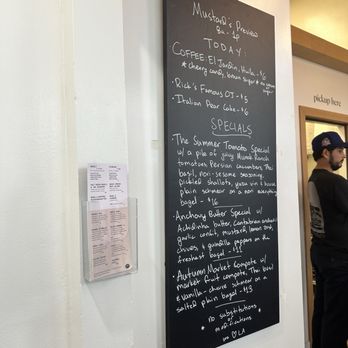 Mustard's Preview
8a - 1p
TODAY:
COFFEE: El Jardin, Huila - $6
* cherry candy, brown sugar *
• Rick's Famous OJ - $5
• Italian Pear Cake - $6
SPECIALS
• The Summer Tomato Special
w/ a pile of juicy Munak Ranch
tomatoes, Persian cucumbers, Thai
basil, non-sesame seasoning,
pickled shallots, yuzu vin & house
plain schmear on a non everything
bagel - $16
• Anchovy Butter Special w/
butter, Cantabrian anchovies
garlic confit, mustard, lemon zest,
chives, & guindilla peppers on the
freshest bagel - $11
• Autumn Market Compote w/
market fruit compote, Thai basil
& vanilla - chevre schmear on a
salted plain bagel - $13
* no substitutions
or
modifications
LA
pickup here